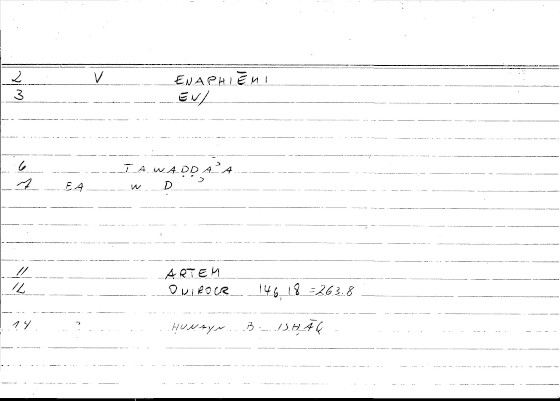 2 V ENAPHIĒMI
3 EN/
6 TAWAḌḌAʾA
7 EA W Ḍʾ
11 ARTEM
12 ONIROCR 146,18 = 263.8
14 ? ḤUNAYN B ISḤĀQ